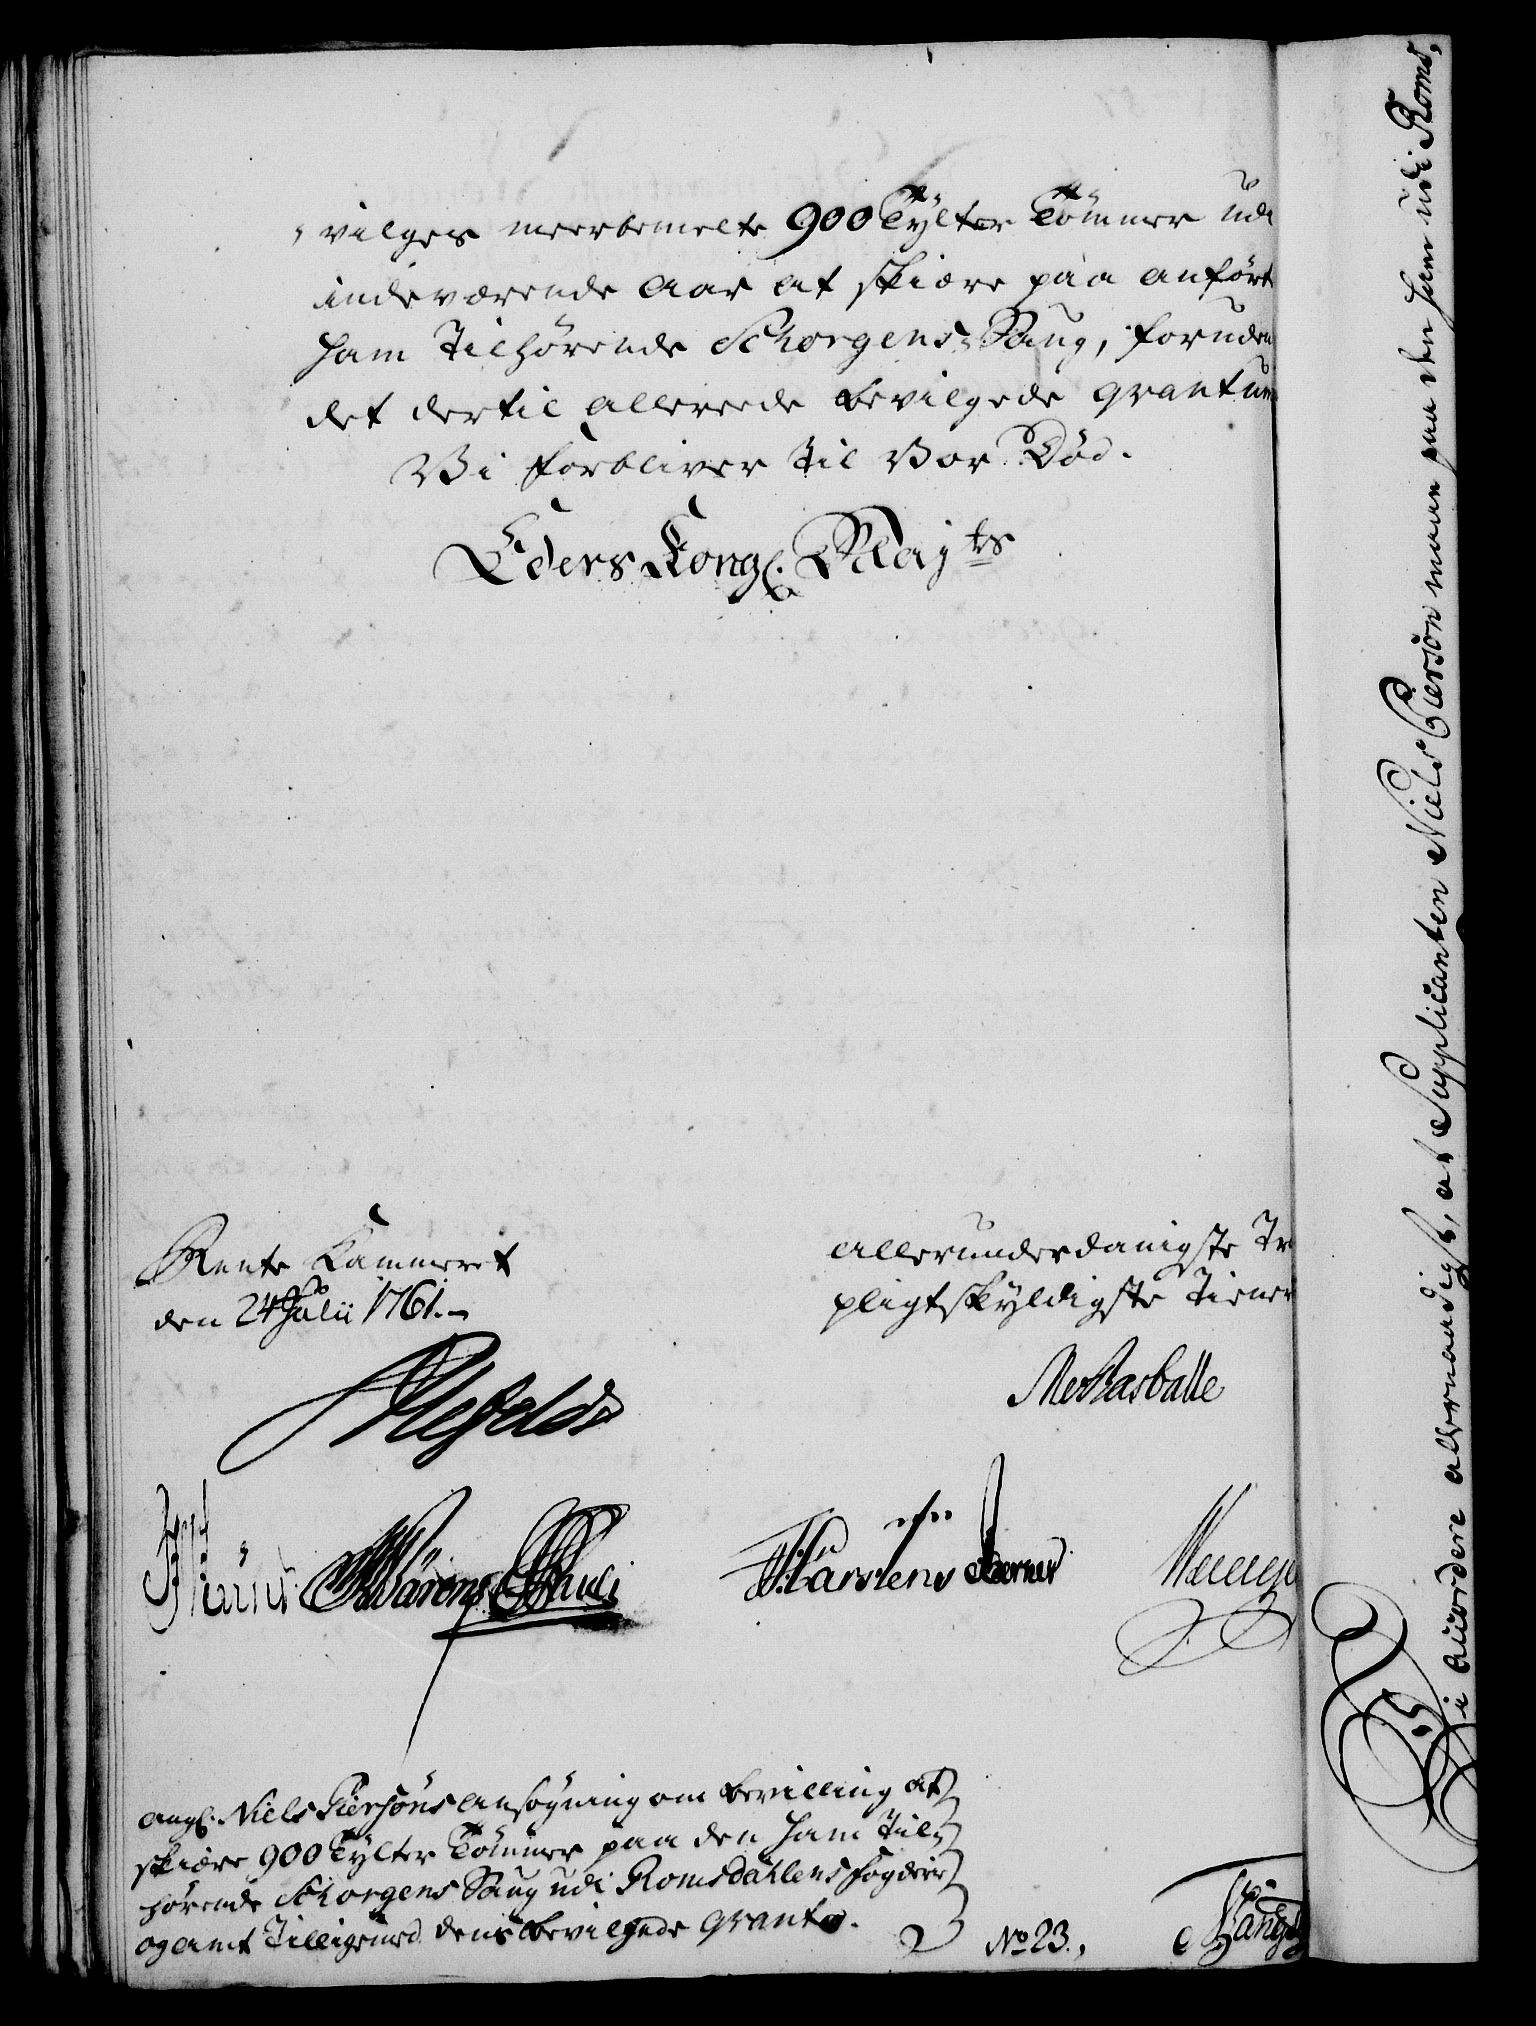 vilges meerbemelte 900 Tylter Tømmer udi
indeværende Aar at skiære paa anførte
ham tilhørende Schorgens-Saug, foruden
det dertil allereede bevilgede qvantum
Vi forbliver til Vor Død.
Eders Kongl. Majts
Rente Kammeret
den 24 Julii 1761.
allerunderdanigste Tr
pligtskyldigste Tiener
angl. Niels Piersøns ansøgning om bevilling at
skiære 900 Tylter Tømmer paa den ham Til-
hørende Schorgens Saug udi Romsdahlens fogderie
og amt Tilligemed dens bevilgede qvanto.
No 23.,
Vi avordere allernaadigst, at Supplicanten Niels Pierson maae paa den ham udi Roms,